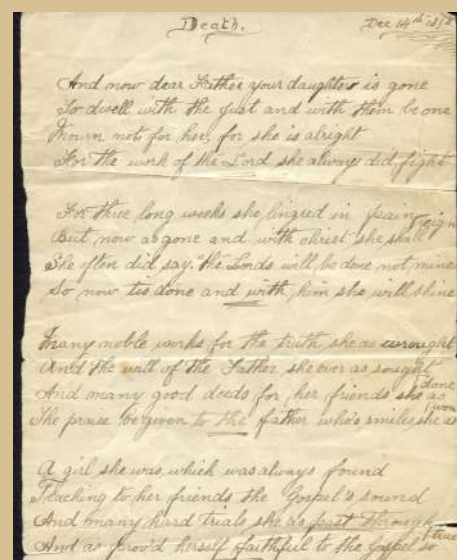 Death.
Dec 14th
And now dear Father your daughter is gone
To dwell with the just and with them be one
Mourn not for her, for she is alright
For the work of the Lord she always did fight
For three long weeks she lingred in pain
But now as gone and with christ she shall reign
She often did say "the" Lords will be done not mine
So now tis done and with him she will shine
Many noble works for the truth she as wrought
And the will of the Father she ever as sought
And many good deeds for her friends she as done
The praise be given to the father who's smiles she as won
A girl she was, which was always found
Teaching to her friends the Gospel's sound
And many hard trials she as past through
And as prov'd herself faithful to the Gospel so true